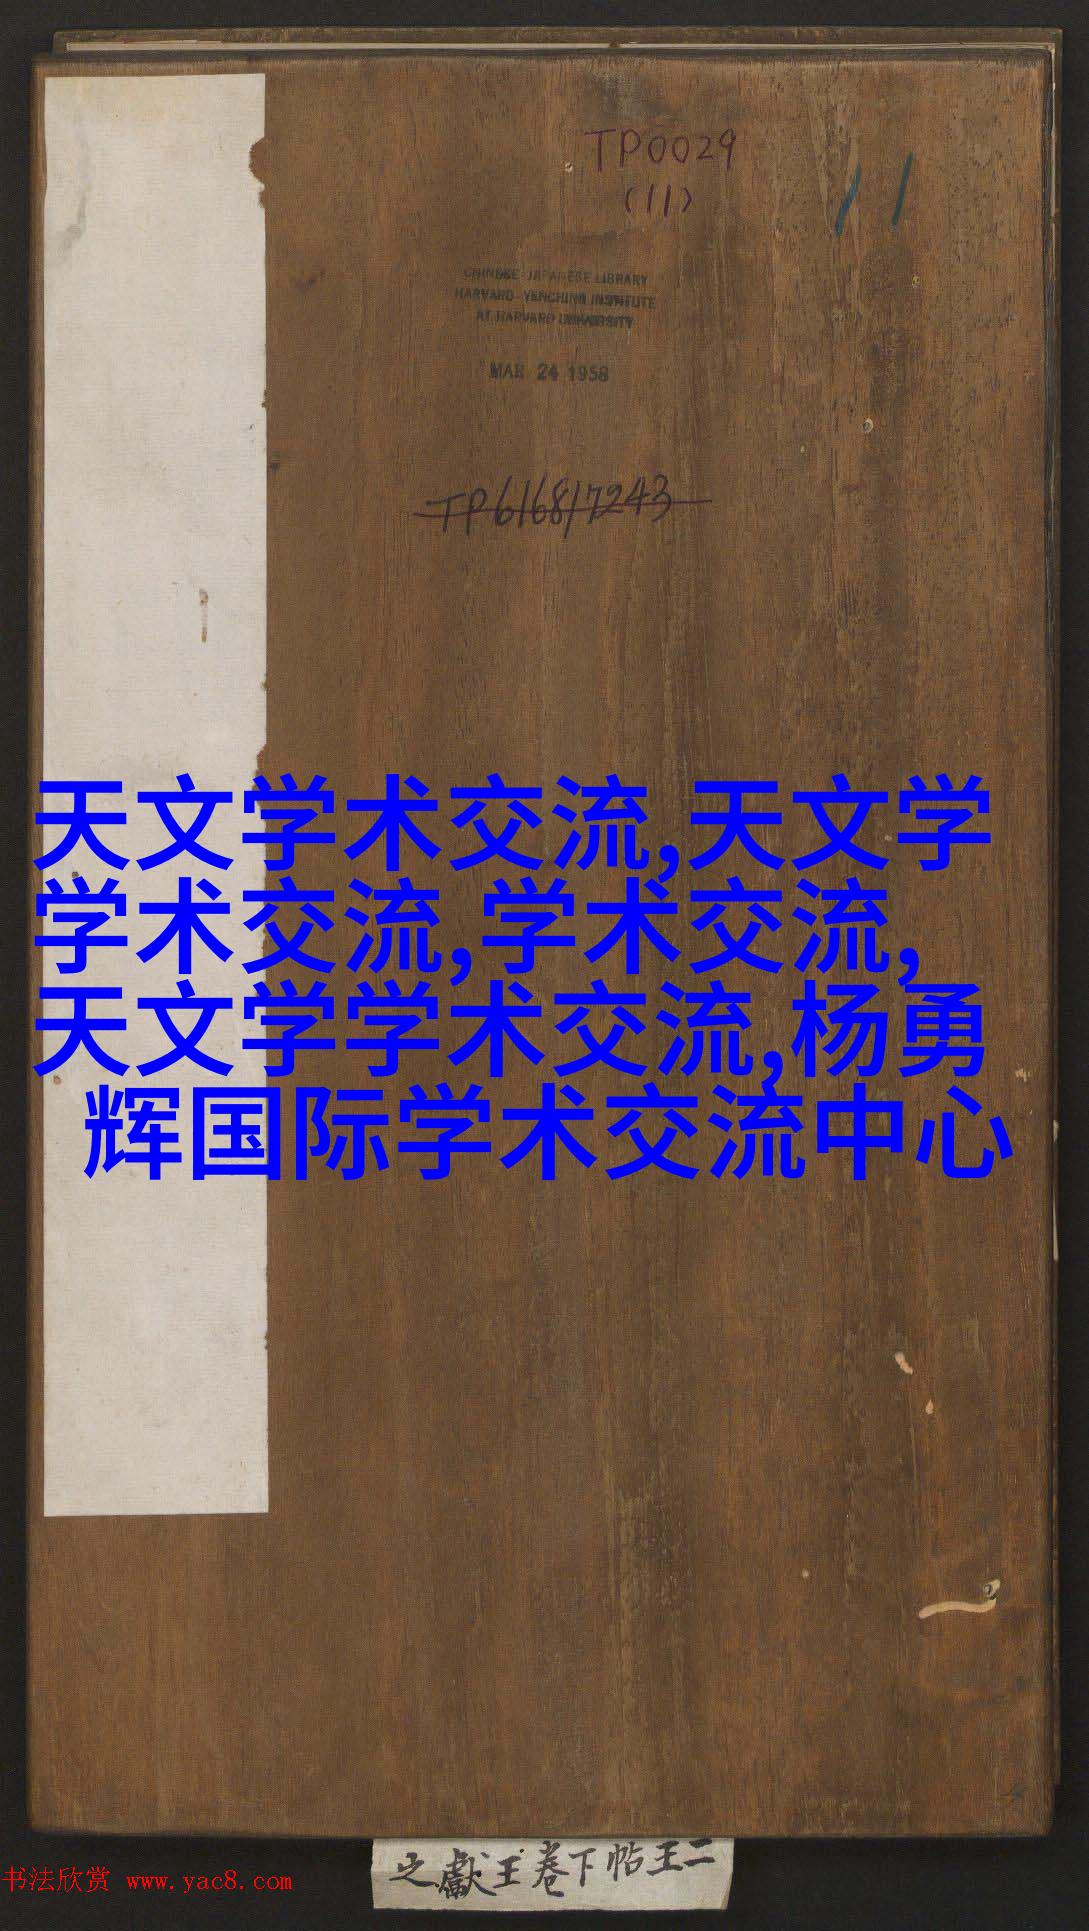 TP0029
(11)
11
CHINESE-JAPANESE LIBRARY
HARVARD-YENCHING INSTITUTE
AT HARVARD UNIVERSITY
MAR 24 1958
TP6168/7243
天文学术交流,天文学
学术交流,学术交流,
天文学学术交流,杨勇
辉国际学术交流中心
二王帖下卷王獻之
书法欣赏 www.yac8.com